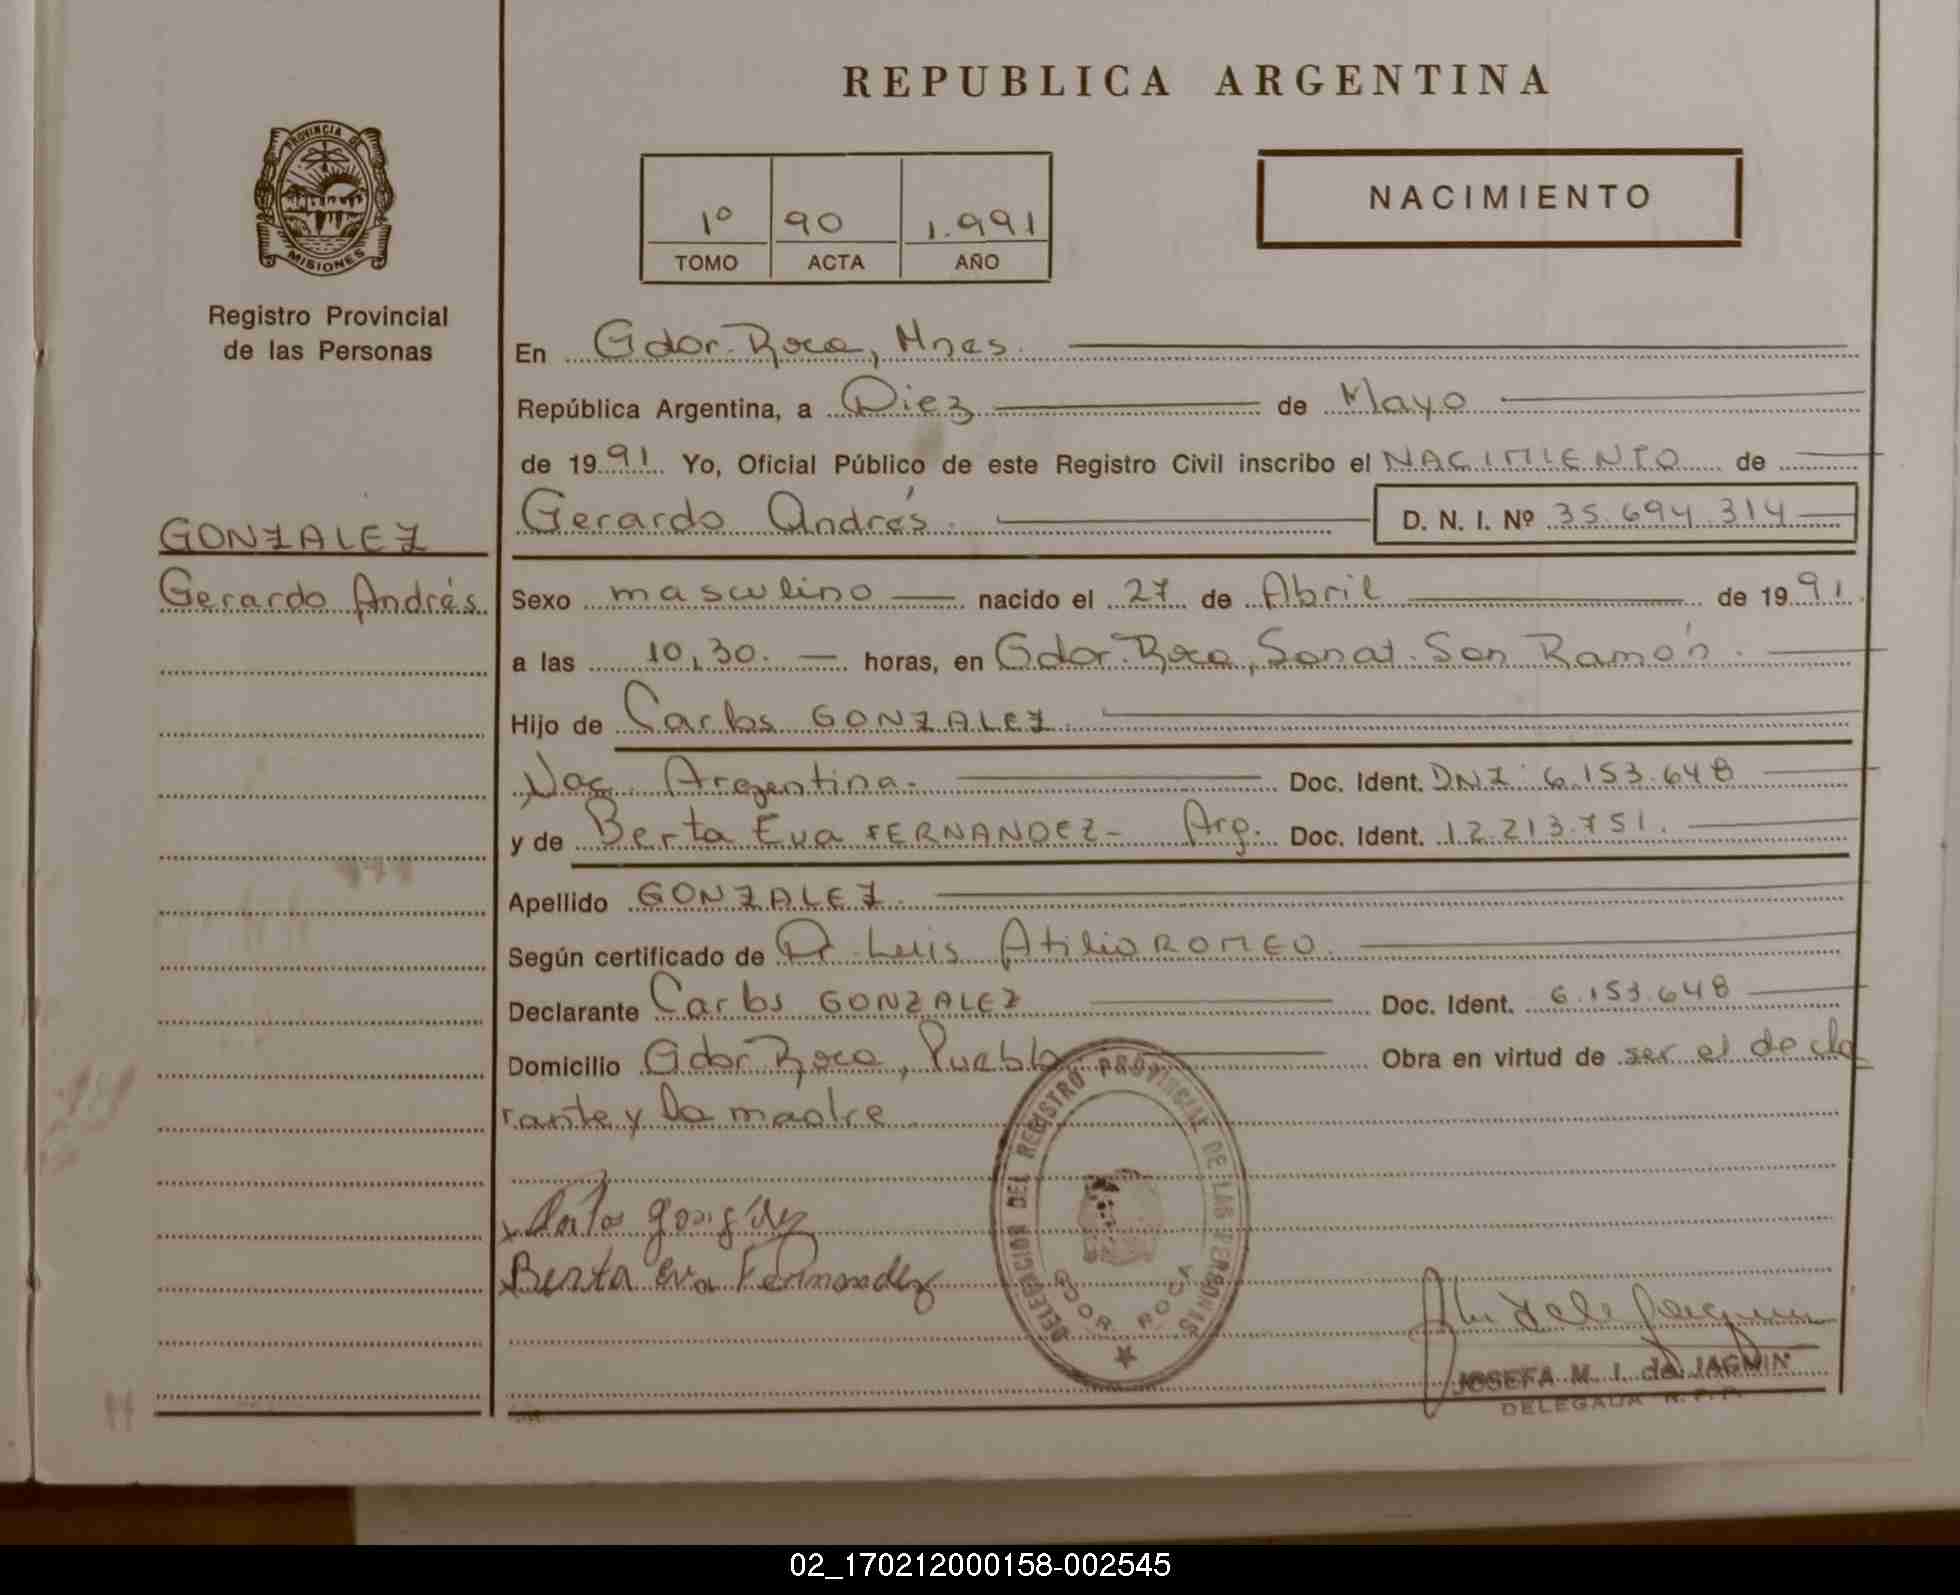 REPUBLICA ARGENTINA
PROVINCIA DE
MISIONES
Registro Provincial
de las Personas
1º 90 1.991
TOMO ACTA AÑO
NACIMIENTO
En Gdor. Roca, Mnes.
República Argentina, a Diez de Mayo
de 1991 Yo, Oficial Público de este Registro Civil inscribo el NACIMIENTO de
Gerardo Andrés. D. N. I. Nº 35.694.314
GONZALEZ
Gerardo Andrés.
Sexo masculino nacido el 27 de Abril de 1991.
a las 10,30. horas, en Gdor. Roca, Sanat. San Ramón.
Hijo de Carlos GONZALEZ.
Nac. Argentina. Doc. Ident. DNI 6.153.648
y de Berta Eva FERNANDEZ- Arg. Doc. Ident. 12.213.751.
Apellido GONZALEZ.
Según certificado de Dr. Luis Atilio ROMEO.
Declarante Carlos GONZALEZ Doc. Ident. 6.153.648
Domicilio Gdor Roca, Pueblo Obra en virtud de ser el decla
rante y la madre
DELEGACION DEL REGISTRO PROVINCIAL DE LAS PERSONAS
GDOR. ROCA
Berta Eva Fernandez
JOSEFA M. I. de JAGMIN
DELEGADA R. P. P.
02_170212000158-002545